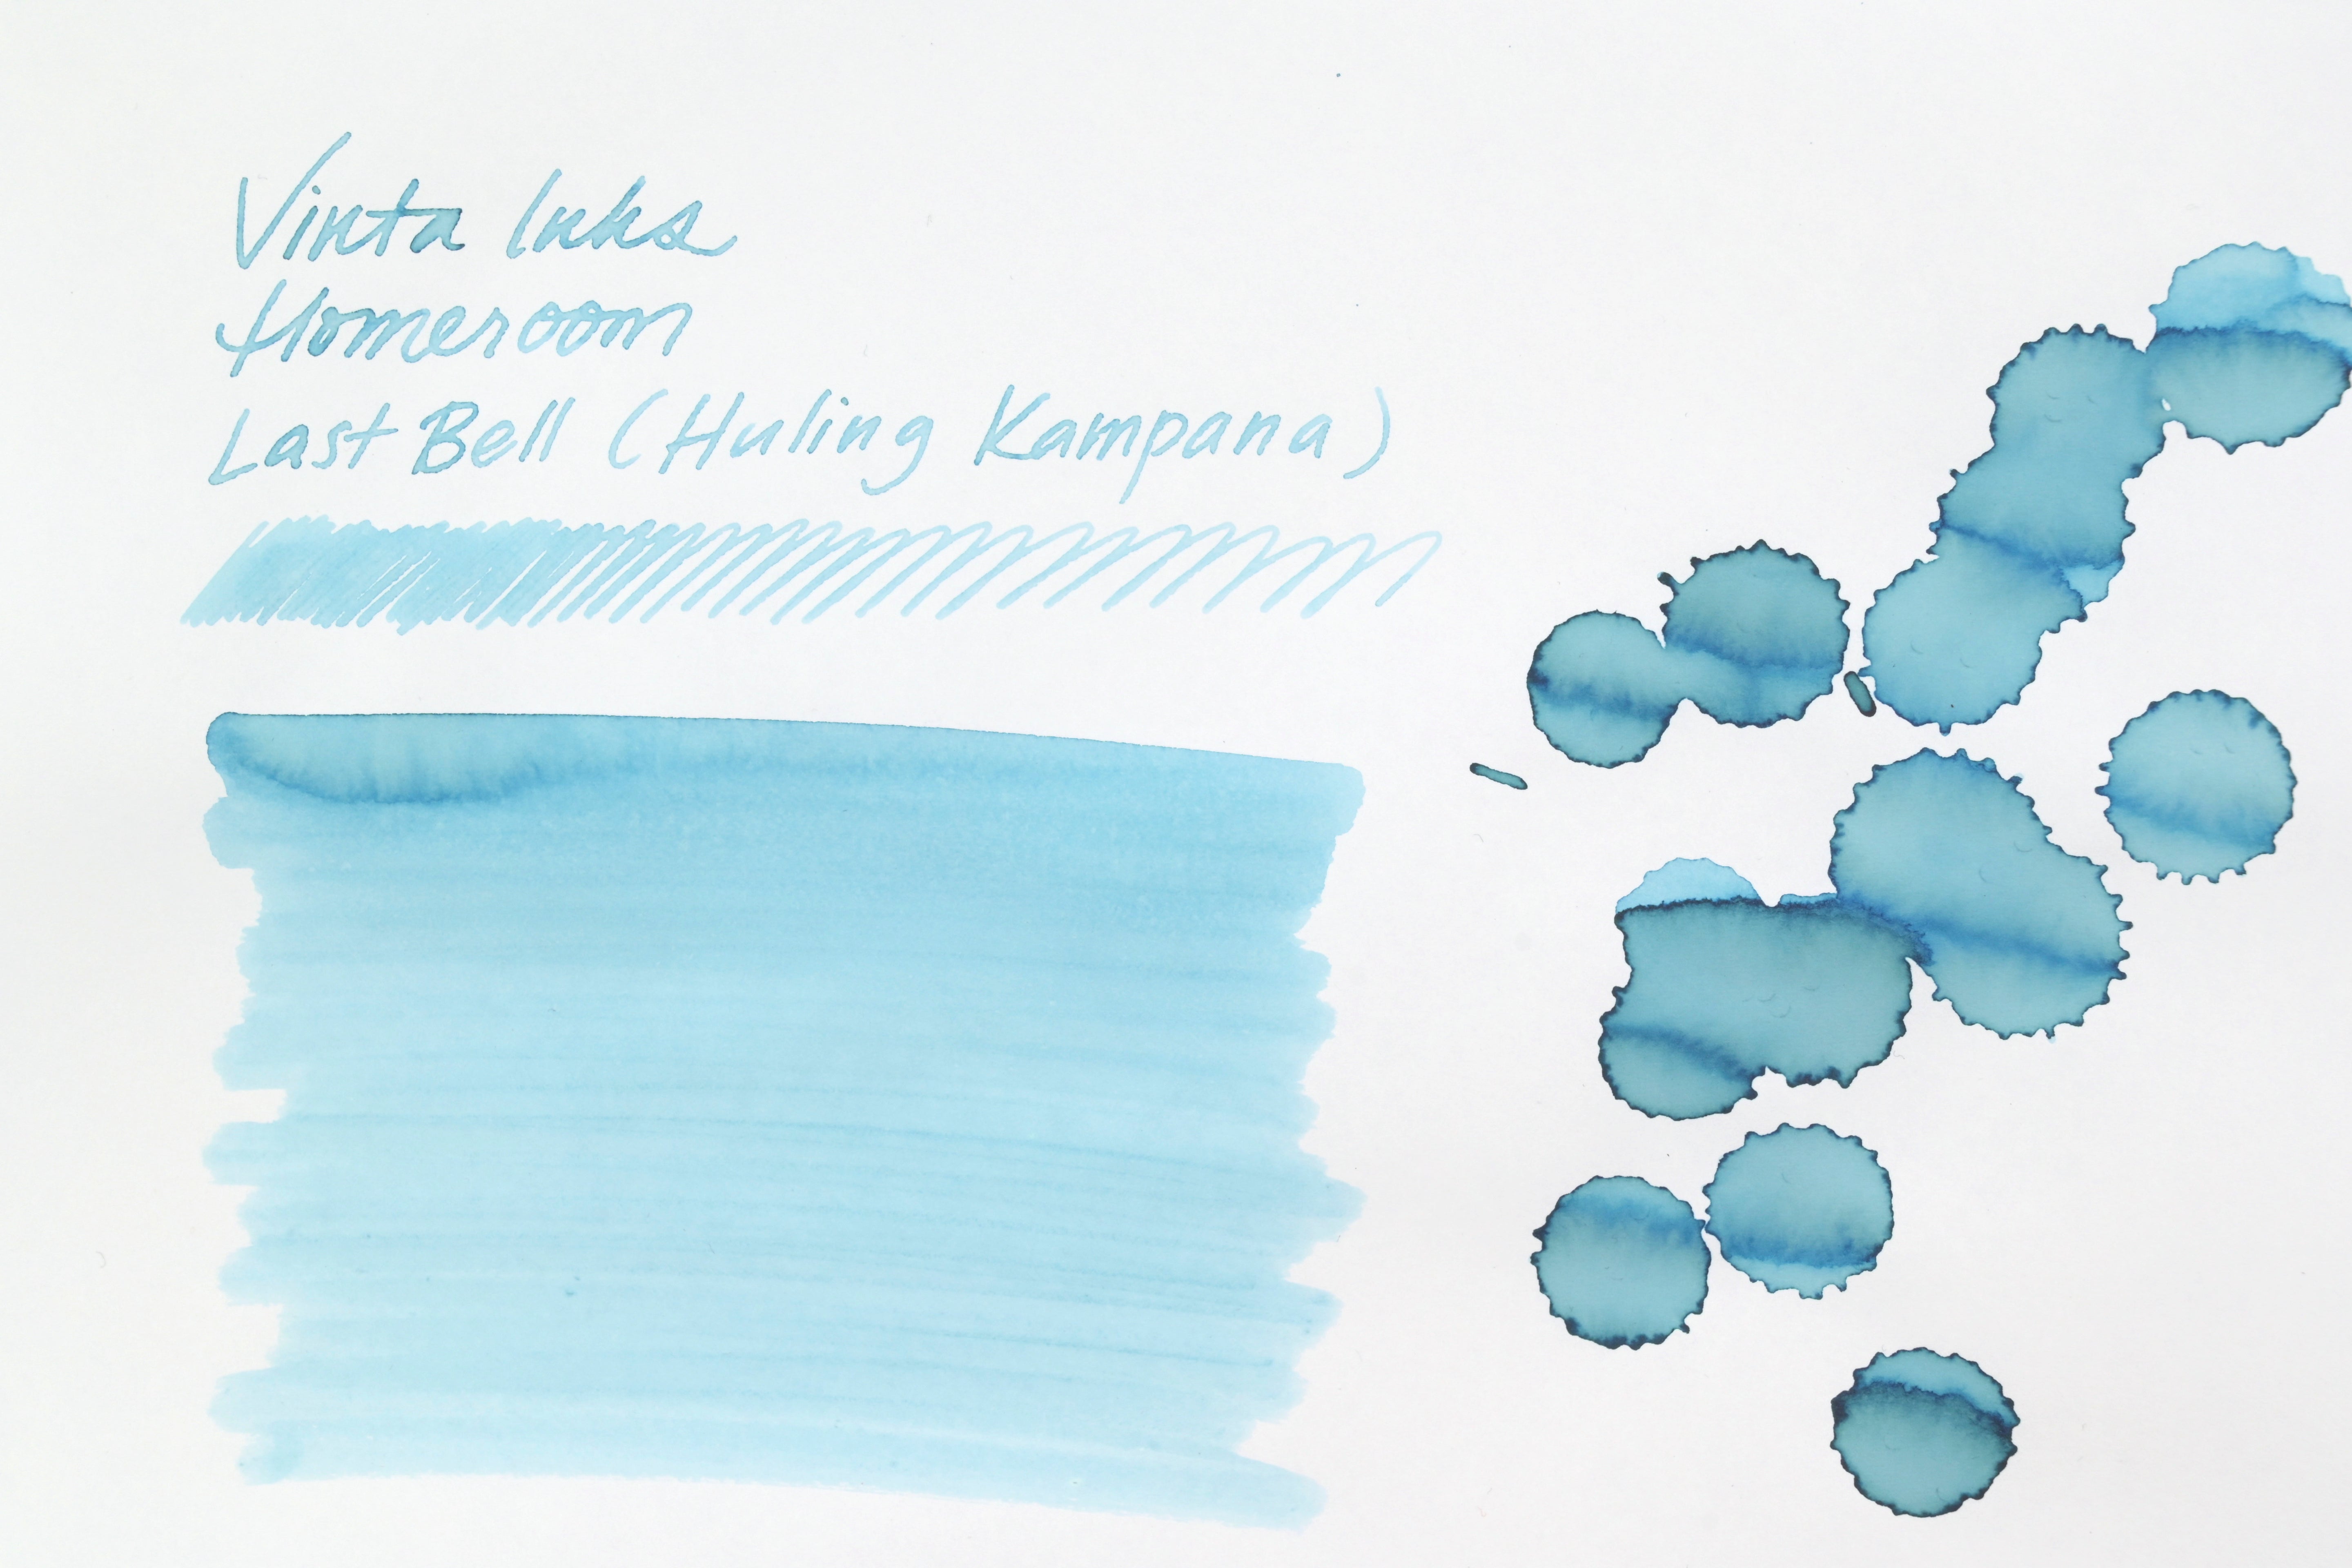 Vinta Inks
Homeroom
Last Bell (Huling Kampana)